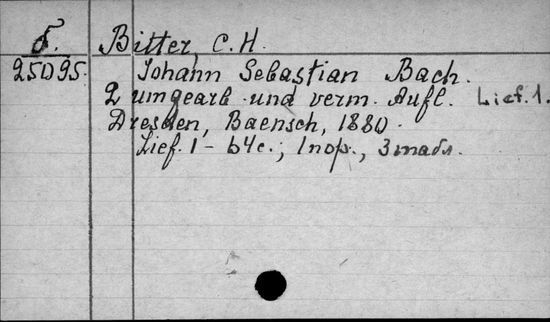 δ. Bitter, C.H.
25095. Johann Sebastian Bach.
2 umgearb und verm. Aufl. Lief. 1.
Dresden, Baensch, 1880.
Lief. 1 - 64c.; 1